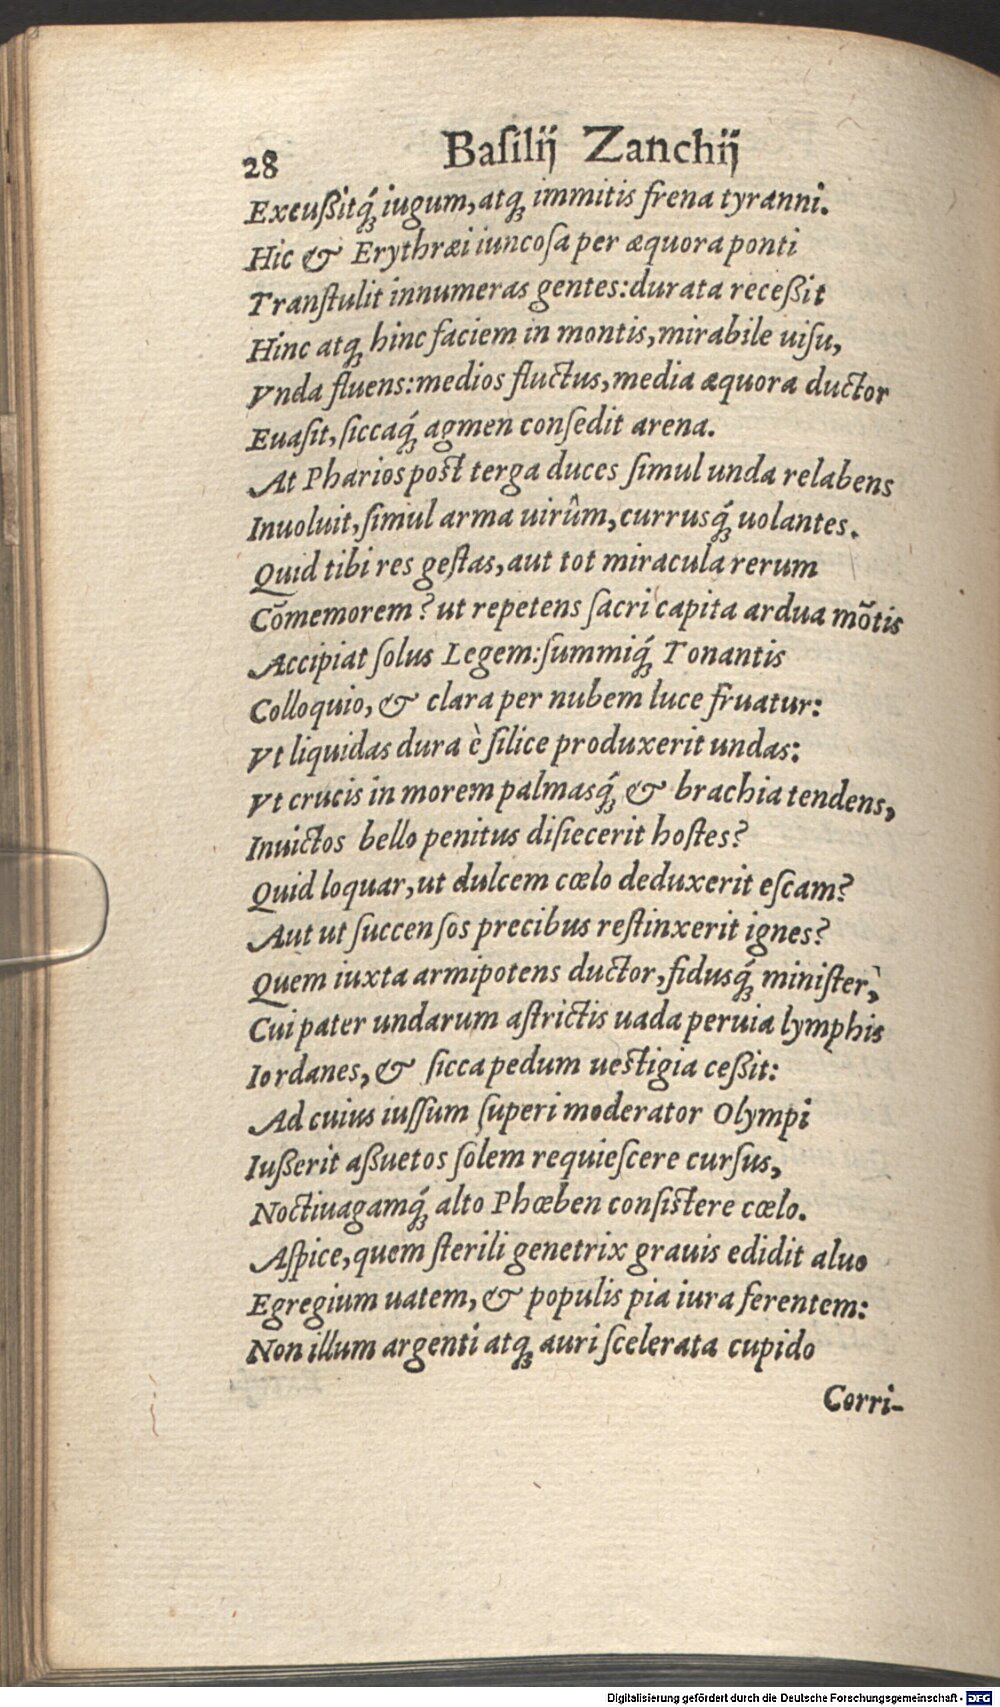 28 Baſilij Zanchij
Excußitq́ꝫ iugum, atqꝫ immitis frena tyranni.
Hic & Erythræi iuncoſa per æquora ponti
Tranſtulit innumeras gentes: durata receßit
Hinc atqꝫ hinc faciem in montis, mirabile uiſu,
Vnda fluens: medios fluctus, media æquora ductor
Euaſit, ſiccaq́ꝫ agmen conſedit arena.
At Pharios poſt terga duces ſimul unda relabens
Inuoluit, ſimul arma uirûm, currusq́ꝫ uolantes.
Quid tibi res geſtas, aut tot miracula rerum
Cōmemorem? ut repetens ſacri capita ardua mōtis
Accipiat ſolus Legem: ſummiq́ꝫ Tonantis
Colloquio, & clara per nubem luce fruatur:
Vt liquidas dura è ſilice produxerit undas:
Vt crucis in morem palmasq́ꝫ & brachia tendens,
Inuictos bello penitus diſiecerit hoſtes?
Quid loquar, ut dulcem cœlo deduxerit eſcam?
Aut ut ſuccenſos precibus reſtinxerit ignes?
Quem iuxta armipotens ductor, fidusq́ꝫ miniſter,
Cui pater undarum aſtrictis uada peruia lymphis
Iordanes, & ſicca pedum ueſtigia ceßit:
Ad cuius iuſſum ſuperi moderator Olympi
Iußerit aßuetos ſolem requieſcere curſus,
Noctiuagamq́ꝫ alto Phœben conſiſtere cœlo.
Aſpice, quem ſterili genetrix grauis edidit aluo
Egregium uatem, & populis pia iura ferentem:
Non illum argenti atqꝫ auri ſcelerata cupido
Corri-
Digitalisierung gefördert durch die Deutsche Forschungsgemeinschaft - DFG